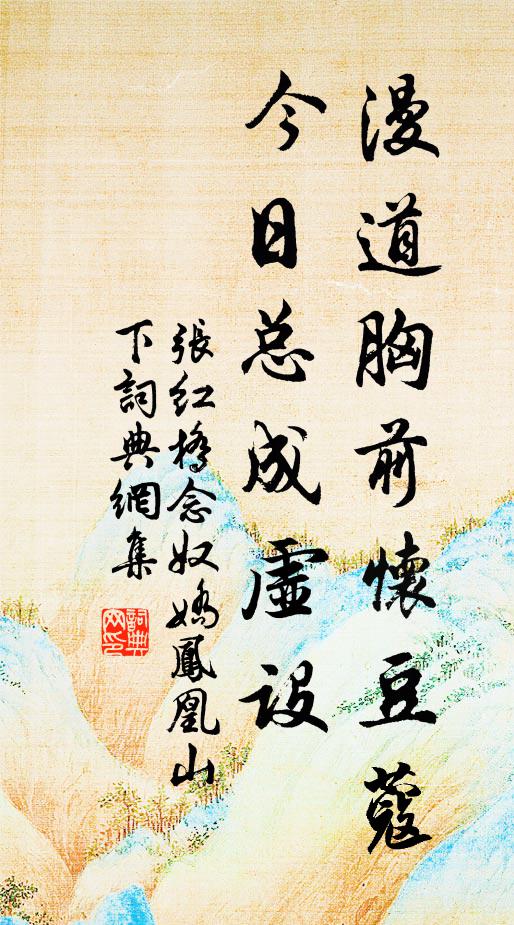 漫道胸前懷豆蔻
今日总成虛設
張红橋念奴嬌鳳凰山
下詞典網集
詞典網印